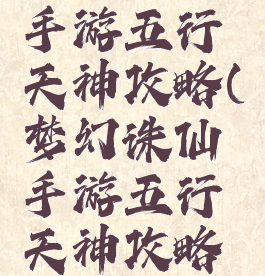 手游五行
天神攻略(
梦幻诛仙
手游五行
天神攻略